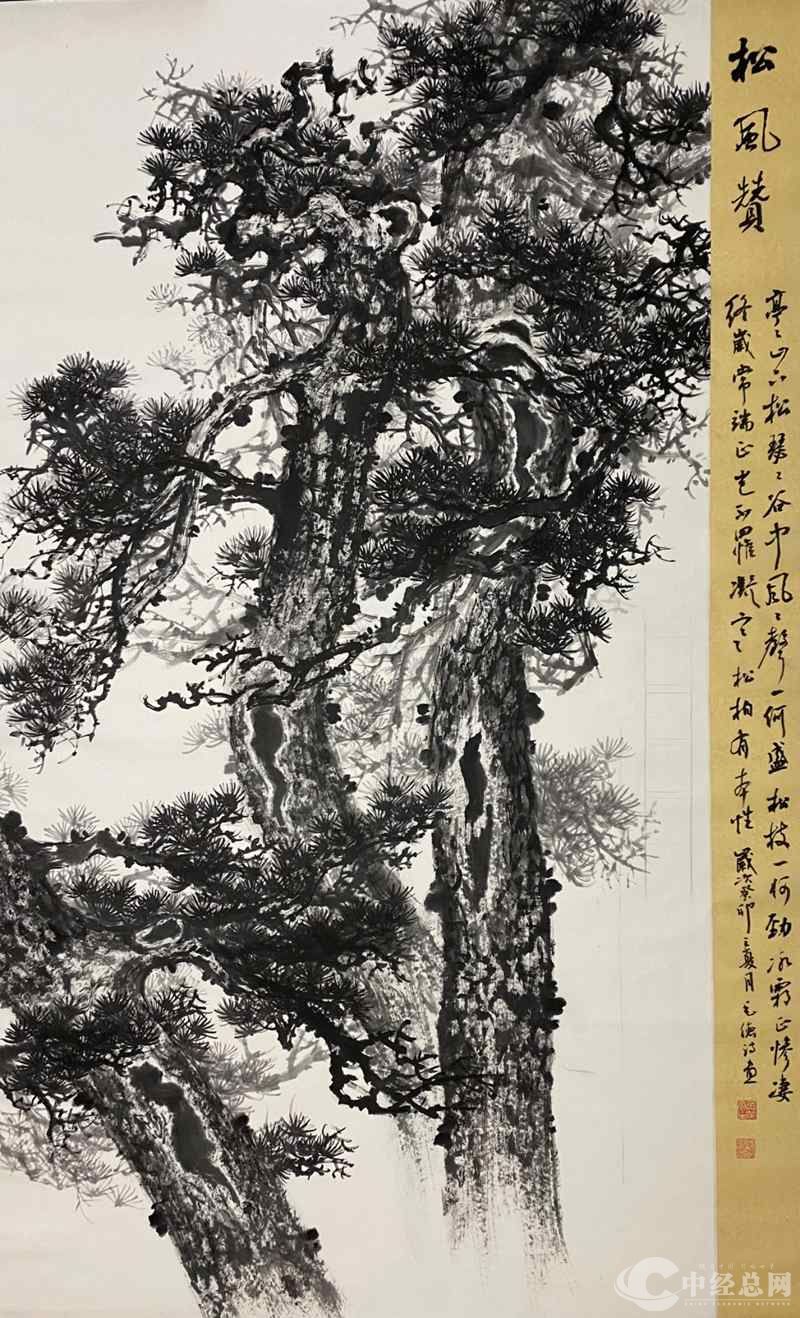 松風贊
亭〻山上松瑟〻谷中風〻聲一何盛松枝一何勁冰霜正慘凄
終歲常端正豈不罹凝寒松柏有本性 歲次癸卯之夏月
中经总网
CHINA ECONOMIC NETWORK